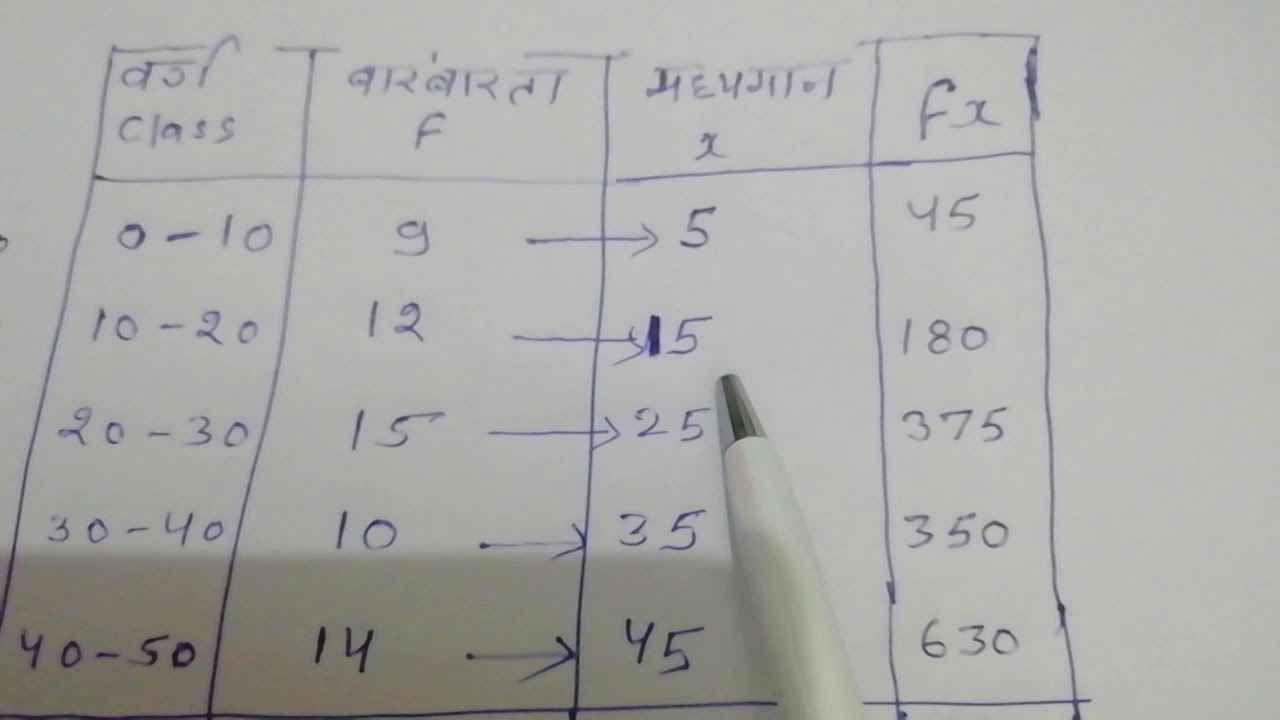 वर्ग बारंबारता मध्यमान fx
Class F x
0-10 9 → 5 45
10-20 12 → 15 180
20-30 15 → 25 375
30-40 10 → 35 350
40-50 14 → 45 630